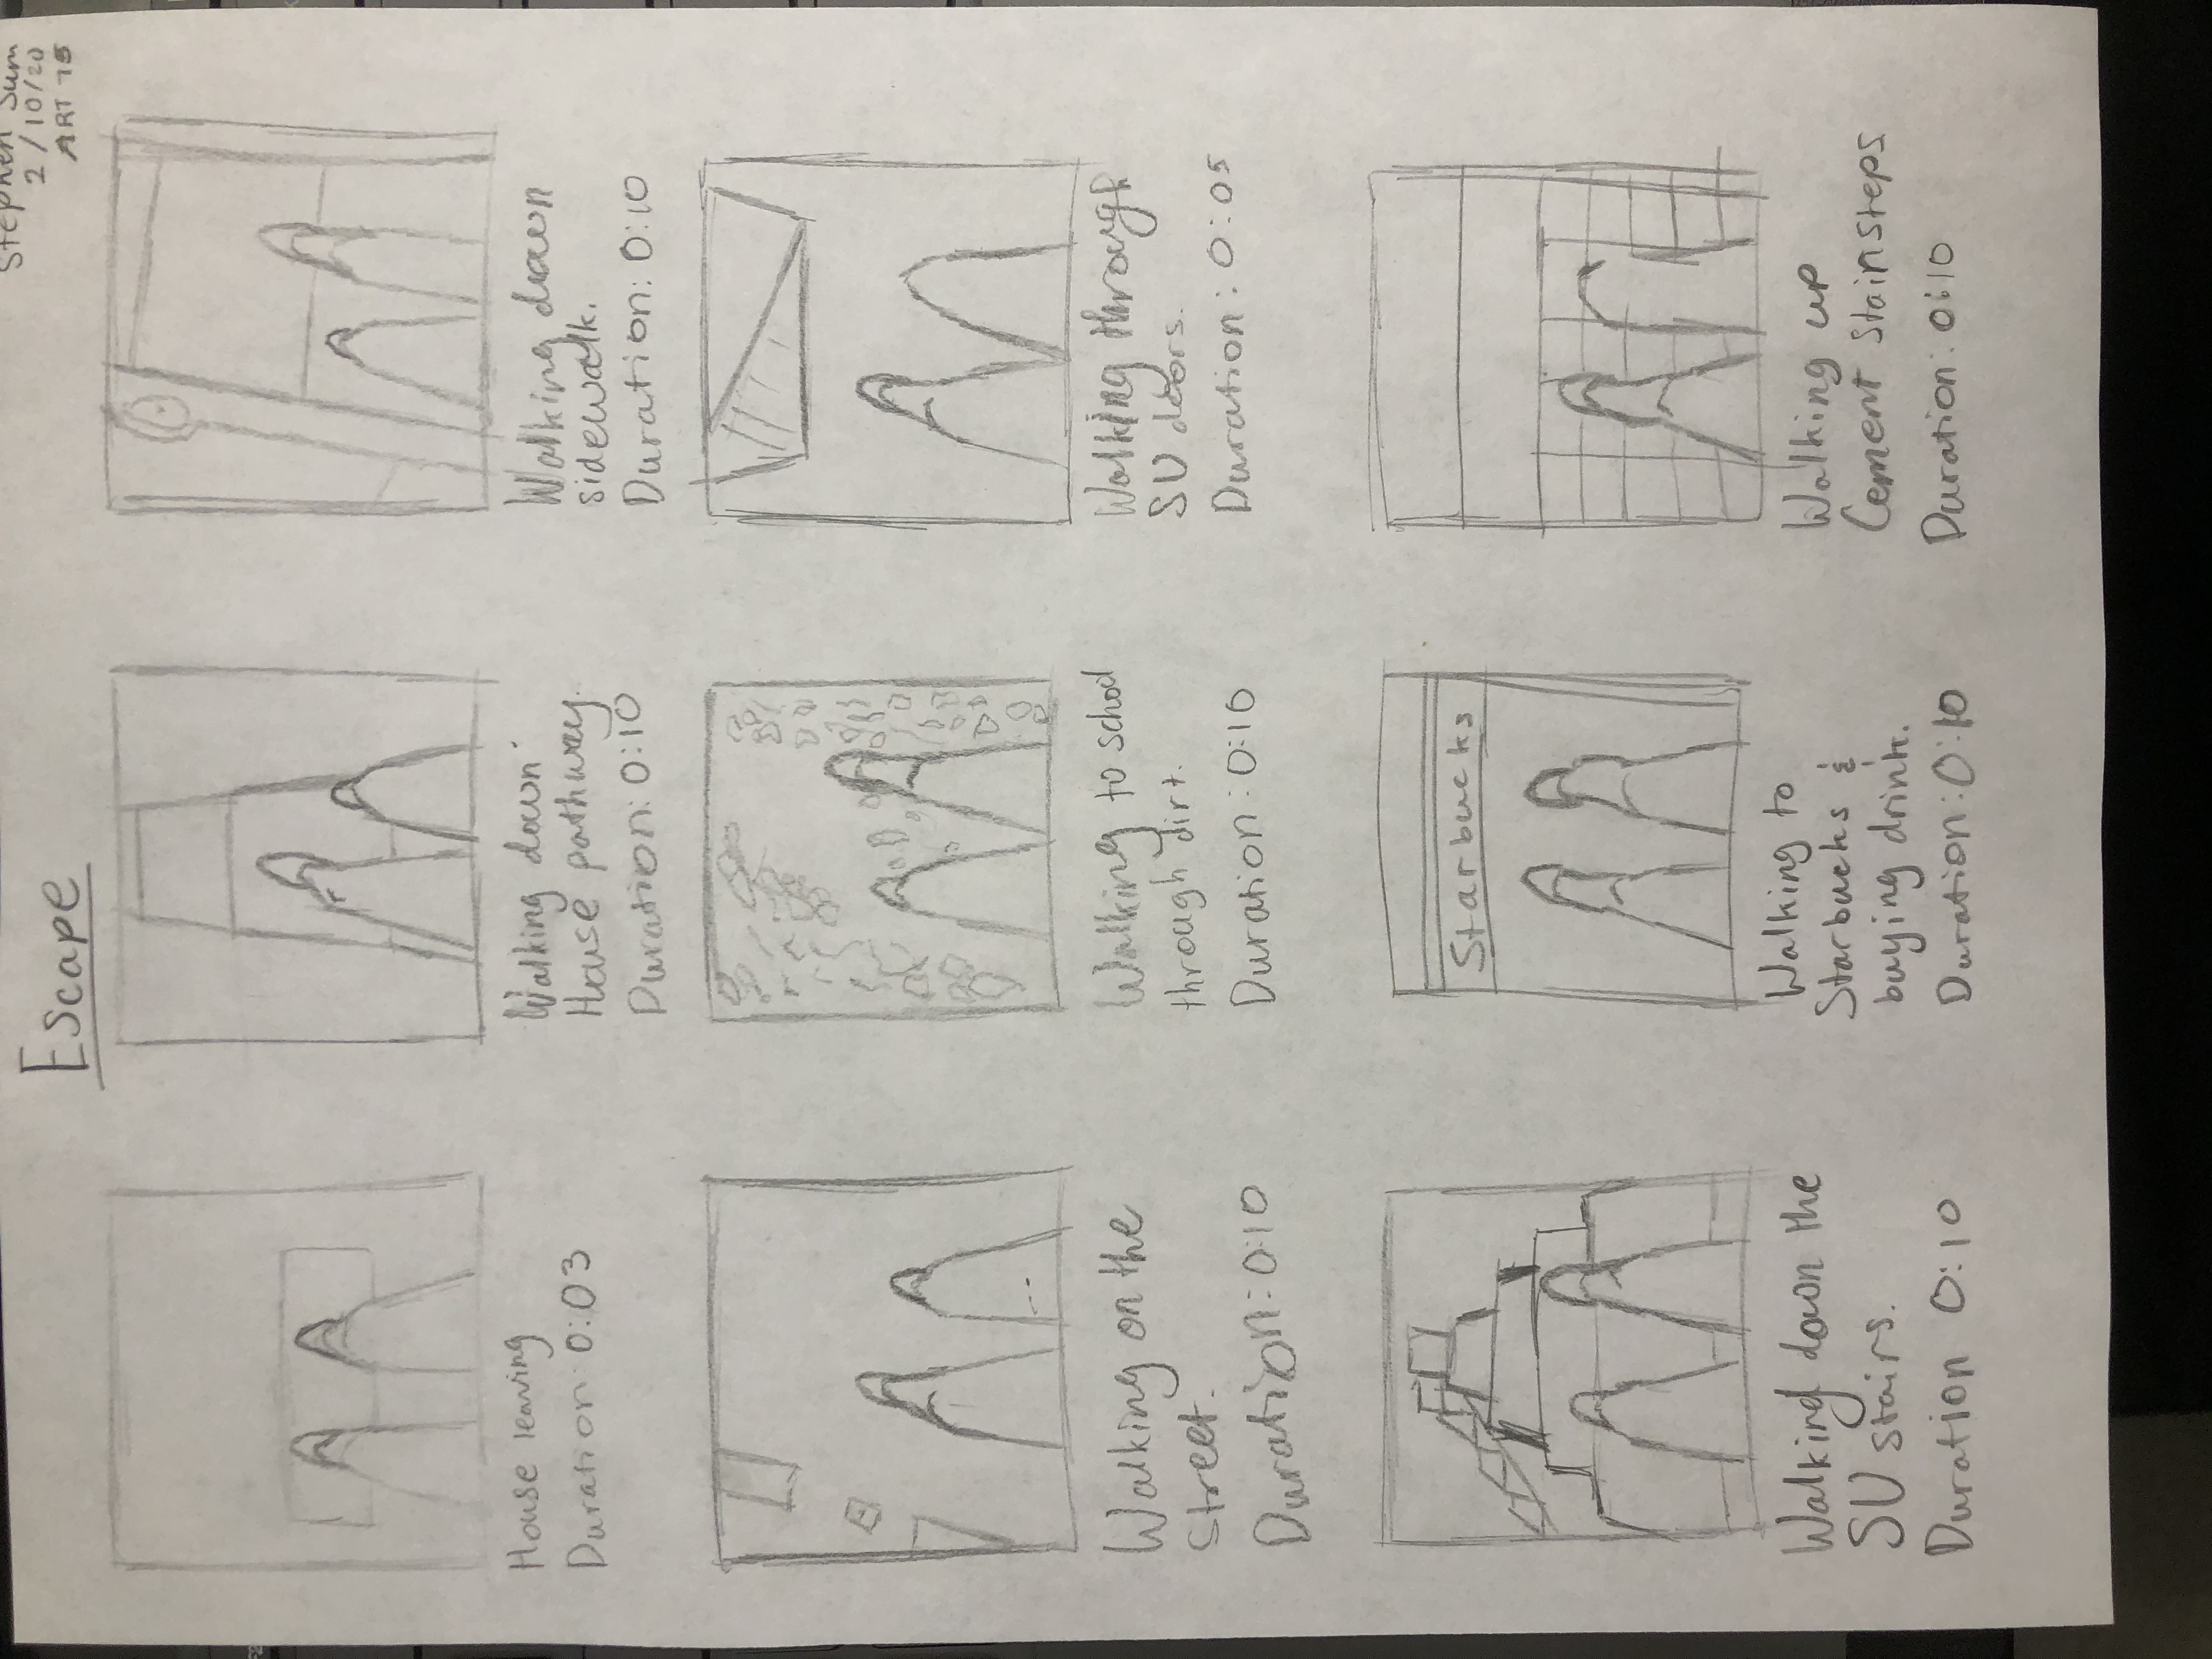 Stephen Sum
2/10/20
ART 75
Escape
House leaving
Duration: 0:03
Walking down
House pathway.
Duration: 0:10
Walking down
sidewalk.
Duration: 0:10
Walking on the
Street.
Duration: 0:10
Walking to school
through dirt.
Duration: 0:10
Walking through
SU doors.
Duration: 0:05
Walking down the
SU stairs.
Duration 0:10
Starbucks
Walking to
Starbucks &
buying drink.
Duration: 0:10
Walking up
Cement Stainsteps
Duration: 0:10